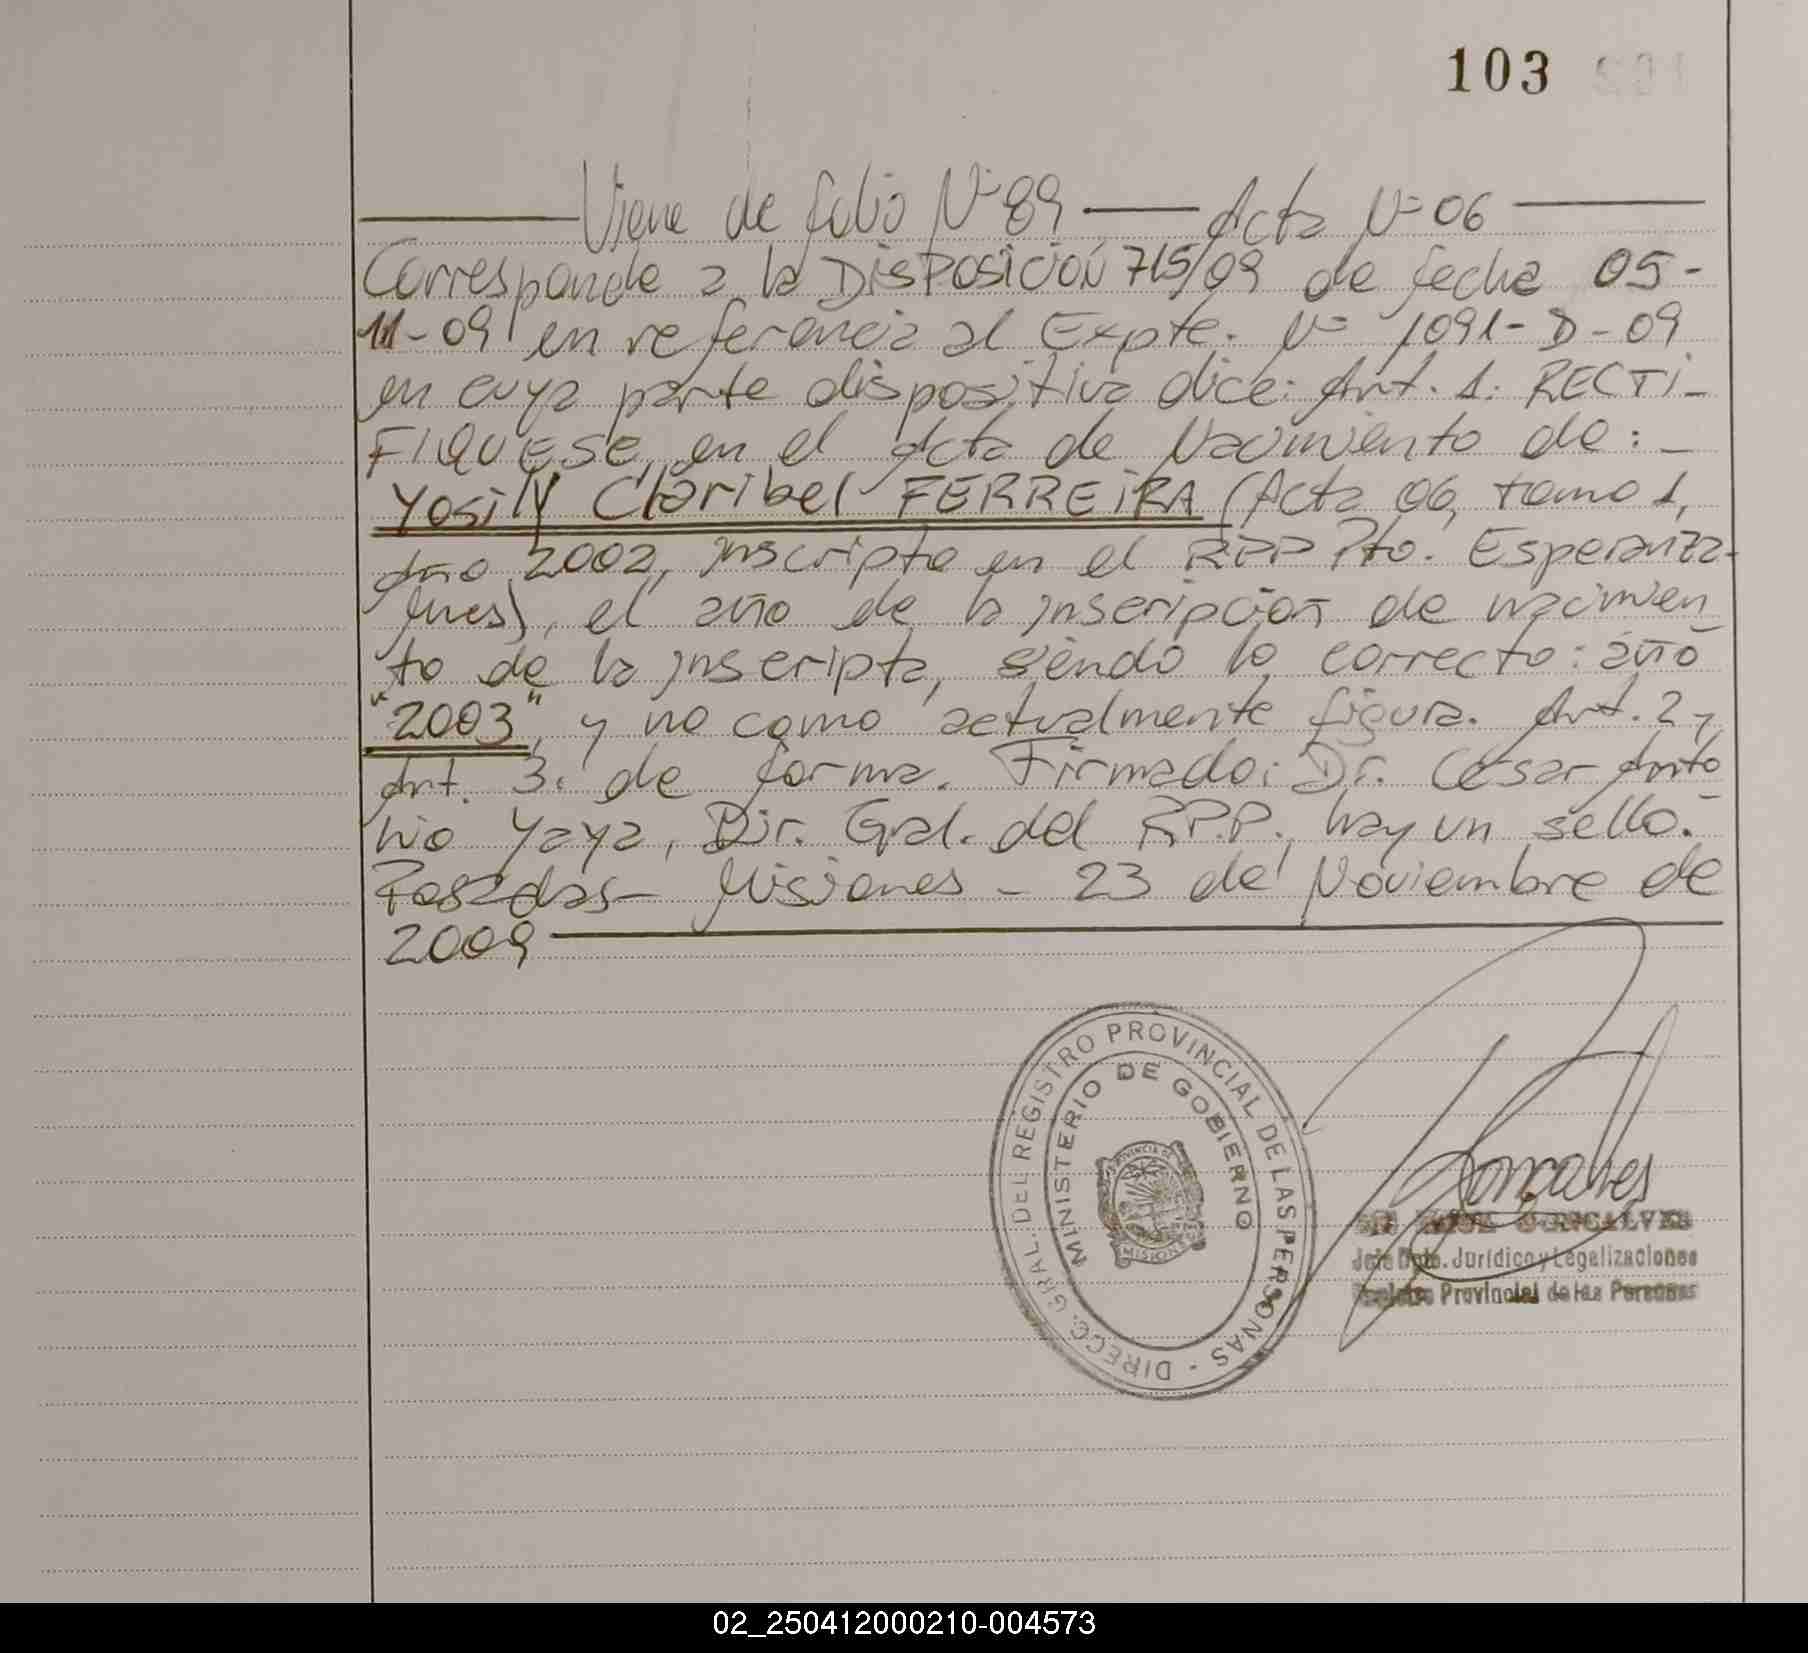 103
Viene de folio Nº 89 — Acta Nº 06
Corresponde a la DISPOSICIÓN 715/09 de fecha 05-
11-09 en referencia al Expte. Nº 1091-D-09
en cuya parte dispositiva dice: Art. 1: RECTI-
FIQUESE, en el Acta de Nacimiento de:
Yosily Claribel FERREIRA (Acta 06, tomo 1,
año 2002, inscripta en el RPP Pto. Esperanza-
Mnes), el año de la inscripción de nacimien
to de la inscripta, siendo lo correcto: año
"2003", y no como actualmente figura. Art. 2 y
Art. 3. de forma. Firmado: Dr. Cesar Anto
nio Yaya, Dir. Gral. del R.P.P., hay un sello.-
Posadas- Misiones - 23 de Noviembre de
2009
DIRECC. GRAL. DEL REGISTRO PROVINCIAL DE LAS PERSONAS -
MINISTERIO DE GOBIERNO
PROVINCIA DE
MISIONES
Goncalves
GONCALVES
Jefe Dpto. Jurídico y Legalizaciones
Registro Provincial de las Personas
02_250412000210-004573